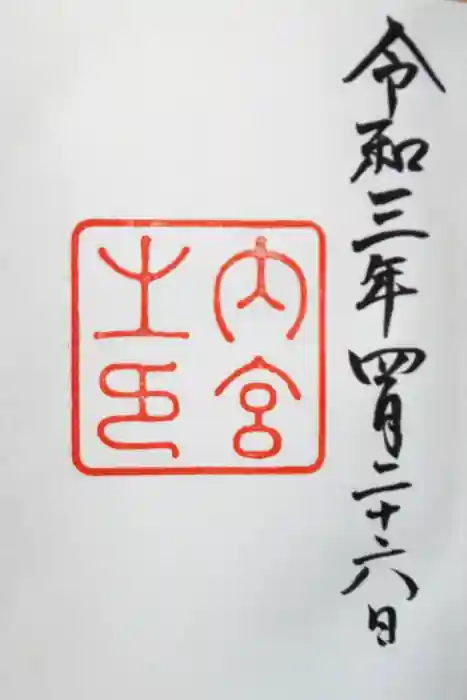 令和三年四月二十六日
内宮
之印